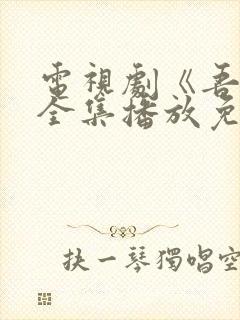 電視劇《吾
全集播放免
抉一琴獨唱空